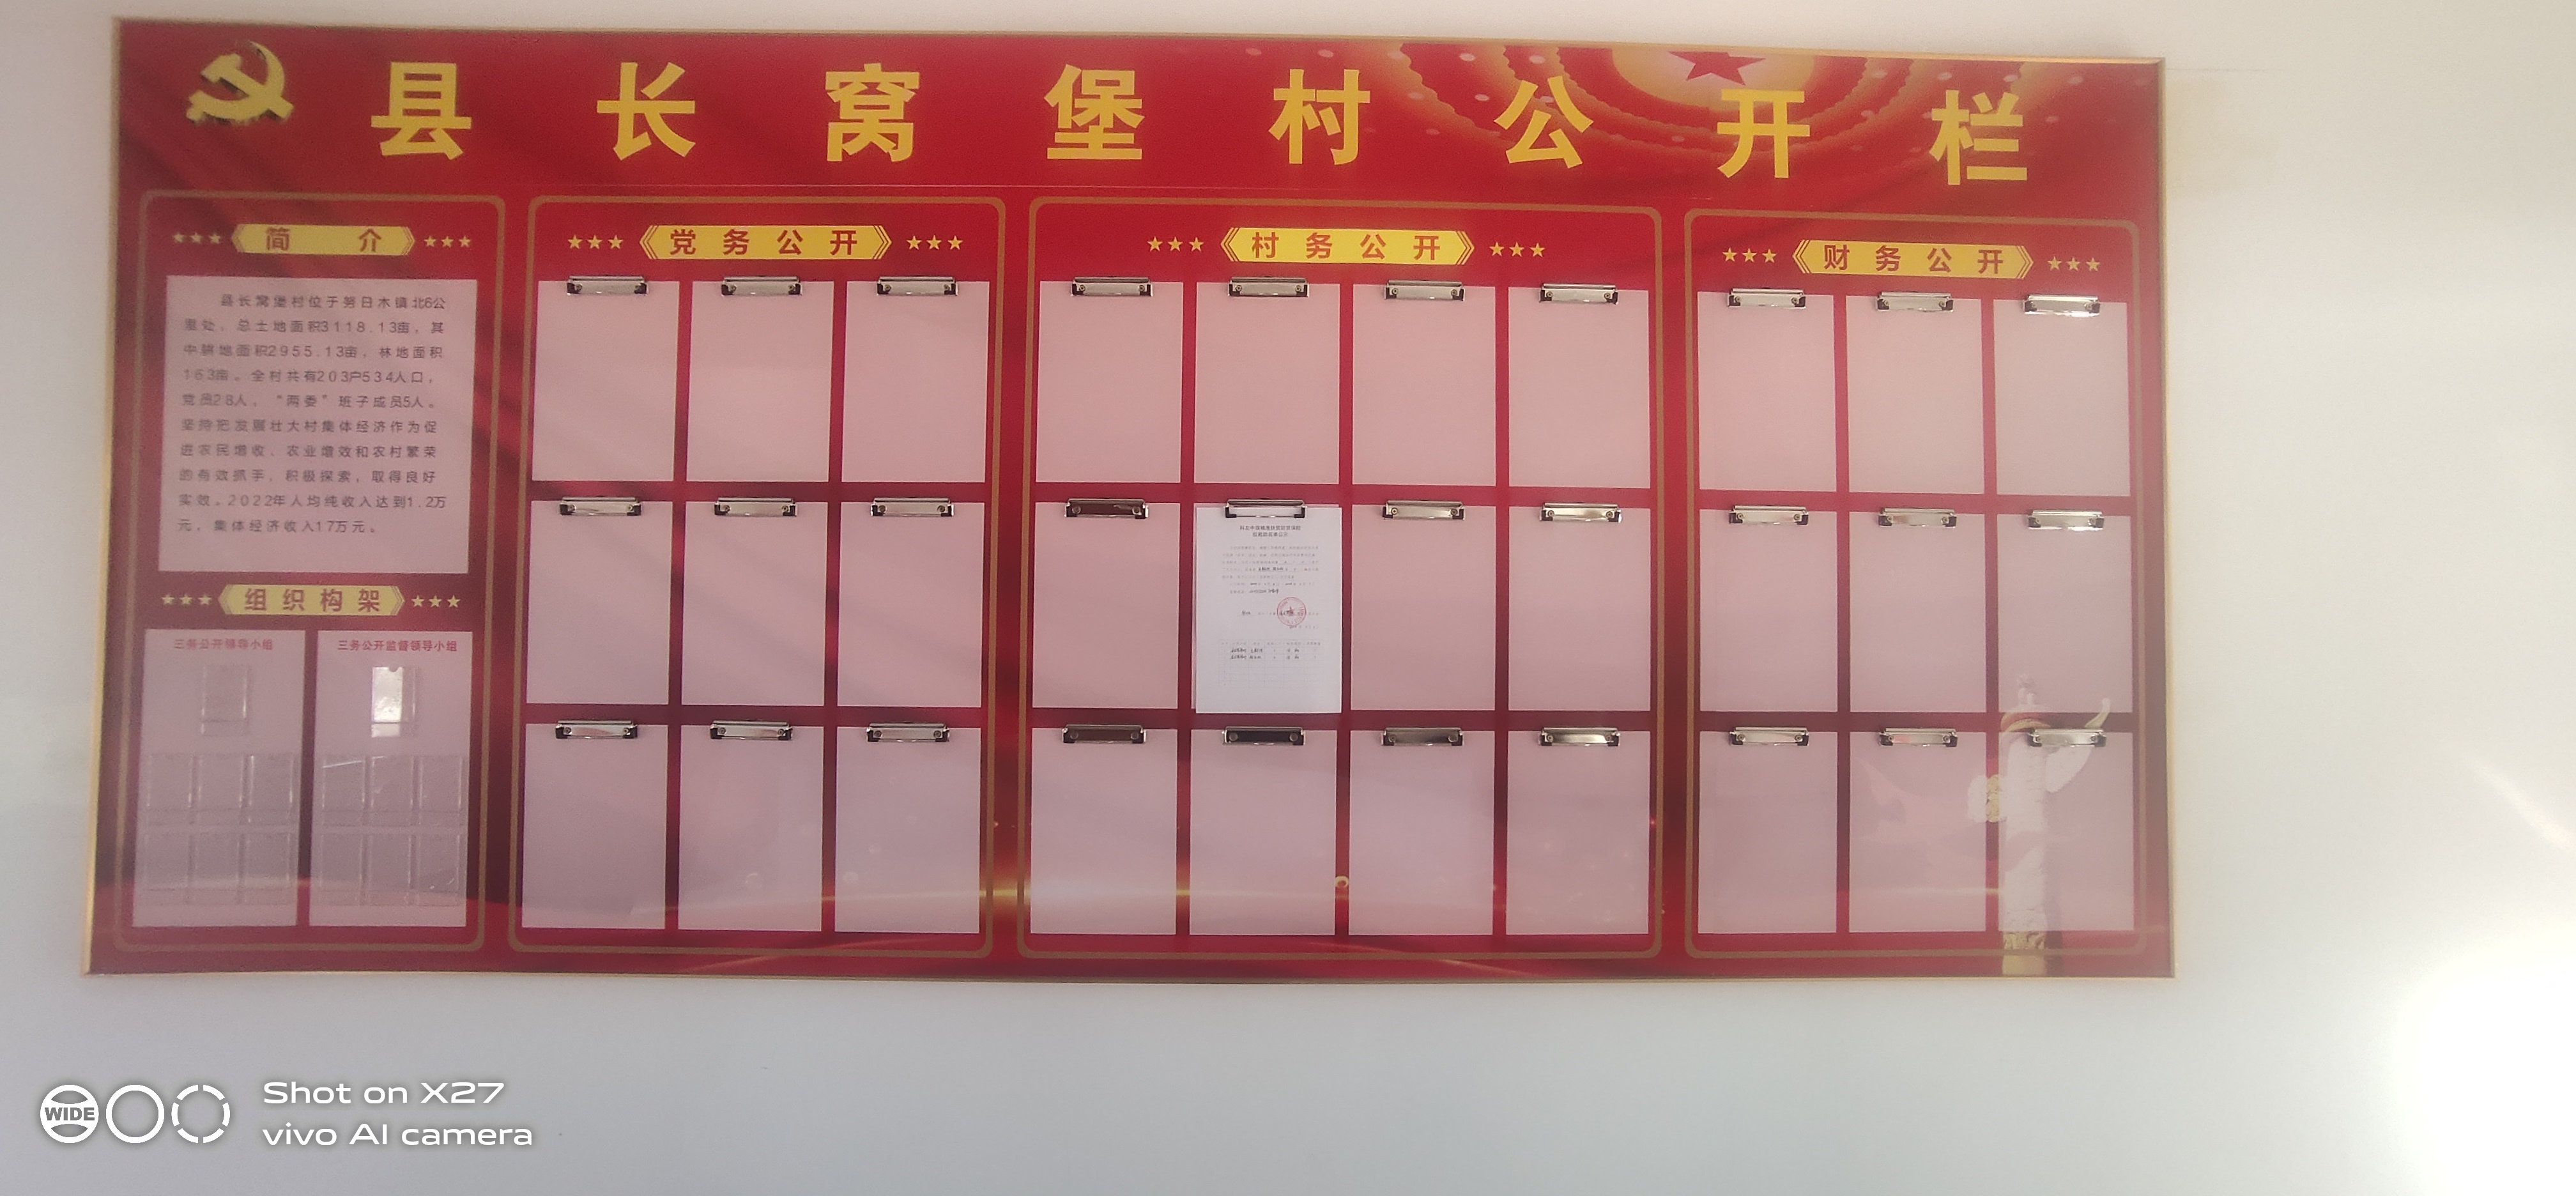 县长窝堡村公开栏
简 介
县长窝堡村位于努日木镇北6公
里处，总土地面积3118.13亩，其
中耕地面积2955.13亩，林地面积
163亩。全村共有203户534人口，
党员28人，“两委”班子成员5人。
坚持把发展壮大村集体经济作为促
进农民增收、农业增效和农村繁荣
的有效抓手，积极探索，取得良好
实效。2022年人均纯收入达到1.2万
元，集体经济收入17万元。
组织构架
三务公开领导小组
三务公开监督领导小组
党务公开
村务公开
财务公开
WIDE
Shot on X27
vivo AI camera